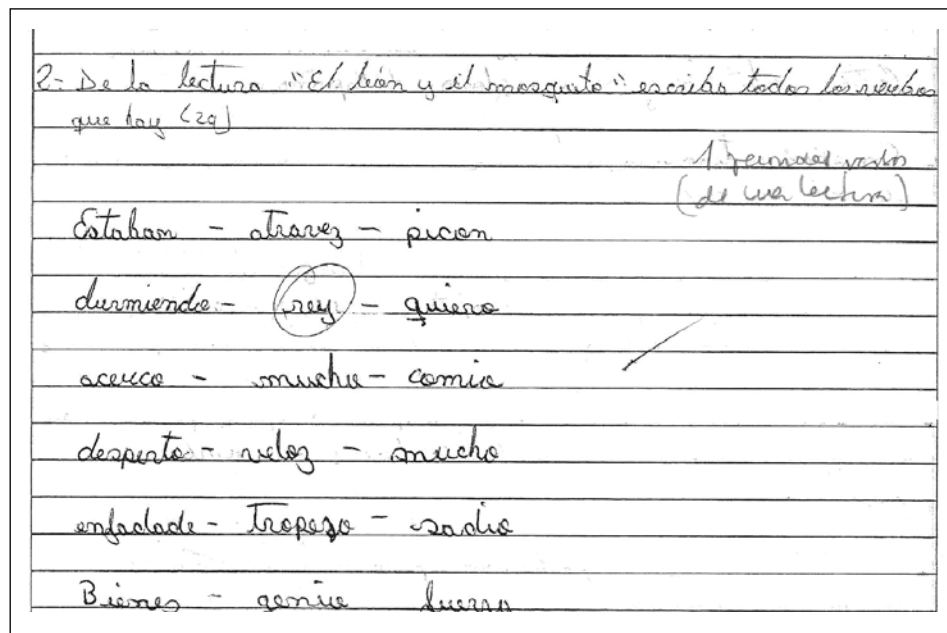 2- De la lectura "El león y el mosquito" escriba todos los verbos
que hay (29)
1.
(de una lectura)
Estaban - atravez - pican
durmiendo - rey - quiero
acerco - mucho - comia
desperto - veloz - mucho
enfadade - Tropezo - sadio
Bienes - genio fuerra